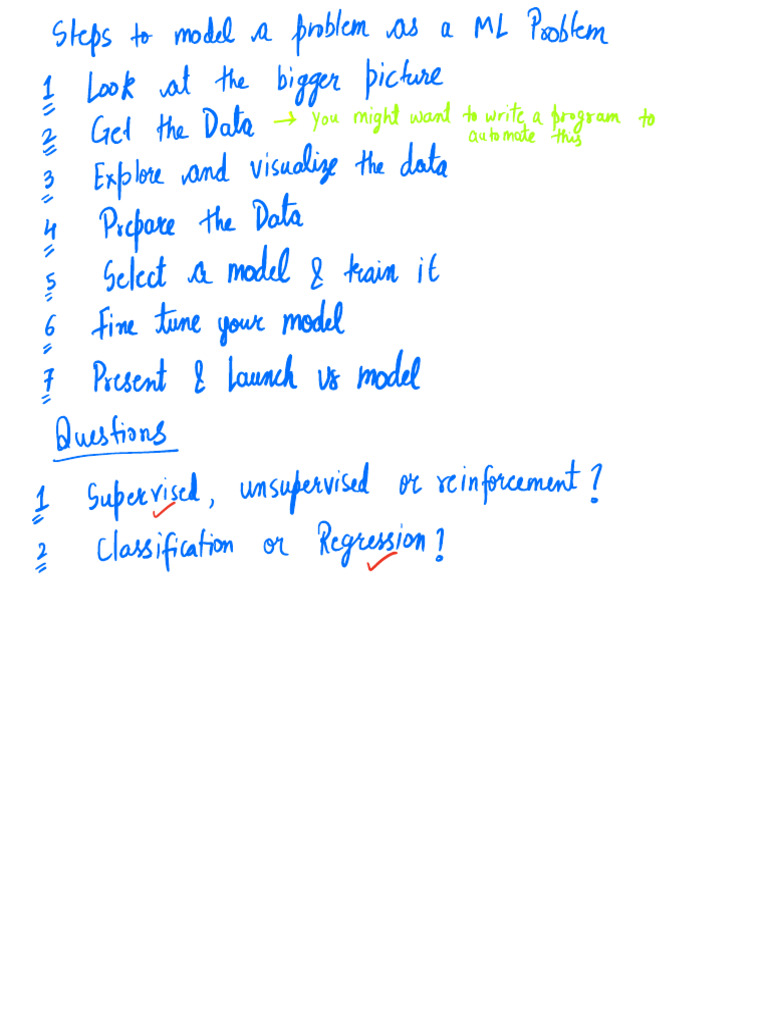 Steps to model a problem as a ML Problem
1 Look at the bigger picture
2 Get the Data → you might want to write a program to
automate this
3 Explore and visualize the data
4 Prepare the Data
5 Select a model & train it
6 Fine tune your model
7 Present & Launch us model
Questions
1 Supervised, unsupervised or reinforcement?
2 Classification or Regression?